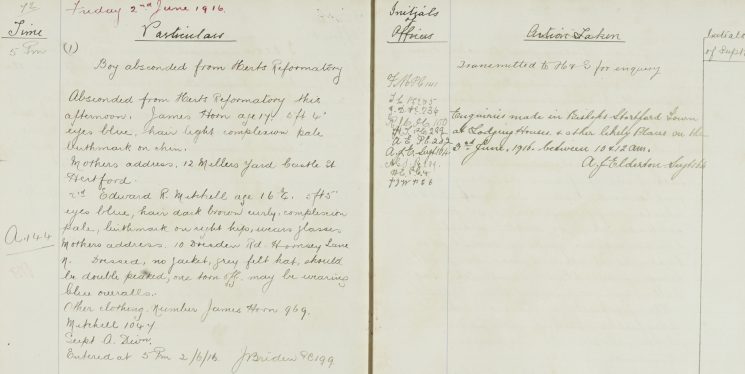 Friday 2nd June 1916.
Time
Particulars
5 Pm
(1)
Boy absconded from Herts Reformatory
Absconded from Herts Reformatory this
afternoon. James Horn age 17. 5ft 4"
eyes blue, hair light complexion pale
birthmark on chin.
Mothers address. 12 Millers Yard Castle St
Hertford.
2nd Edward R. Mitchell age 16 5ft 5
eyes blue, hair dark brown curly, complexion
pale, birthmark on right hip, wears glasses
Mothers address. 10 Dresden Rd. Hornsey Lane
N. Dressed, no jacket, grey felt hat, should
be double peaked, one torn off. may be wearing
blue overalls.
Other clothing. Number James Horn 969.
Mitchell 1047
Supt A. Divn.
Entered at 5 Pm 2/6/16. J Briden PC 199
A.144
Initials
of
Officers
Action Taken
Initials
of Supt
Transmitted to for enquiry
Enquiries made in Bishops Stortford Town
at Lodging House & other likely Places on the
3rd June. 1916. between 10 & 12 am.
A. J. Elderton